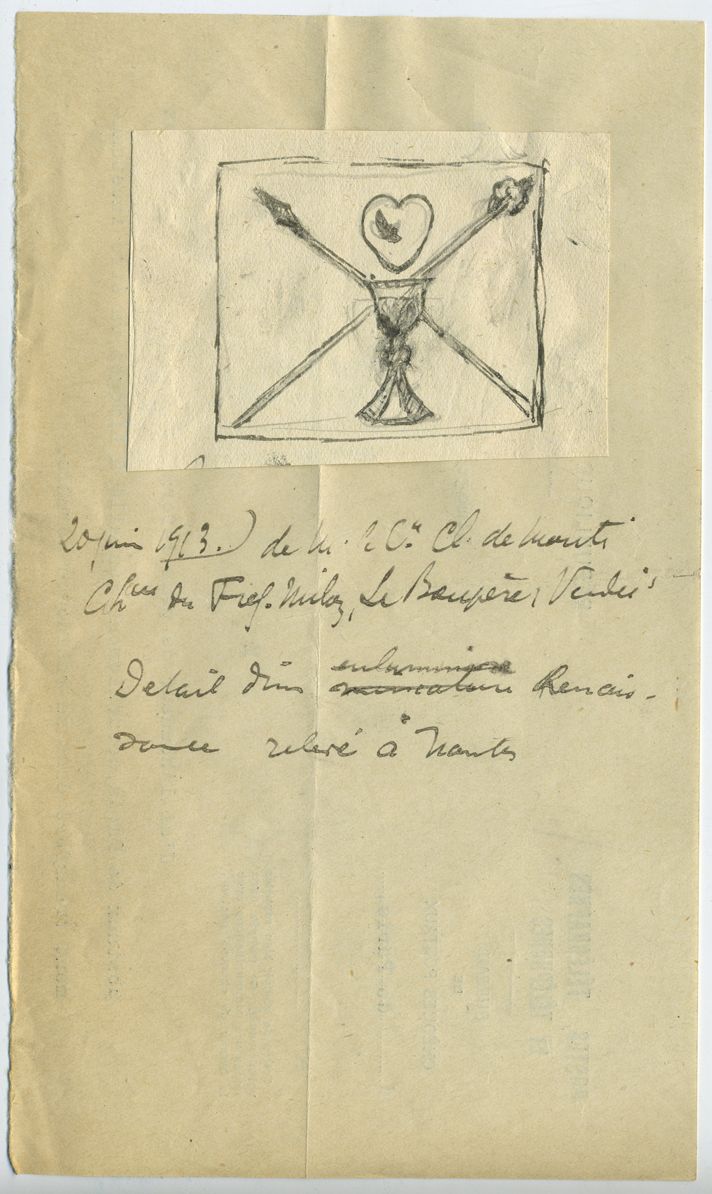 20 juin 1913.) de M. le Cte Cl. de Monti
Ch du Fief-Milon, Le Boupère, Vendée
Détail d'une enluminure Renais-
sance relevé à Nantes